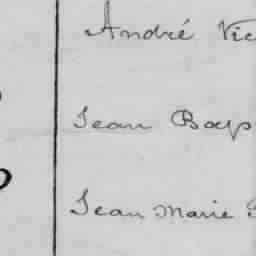 André Vic
Jean Bap
Jean Marie